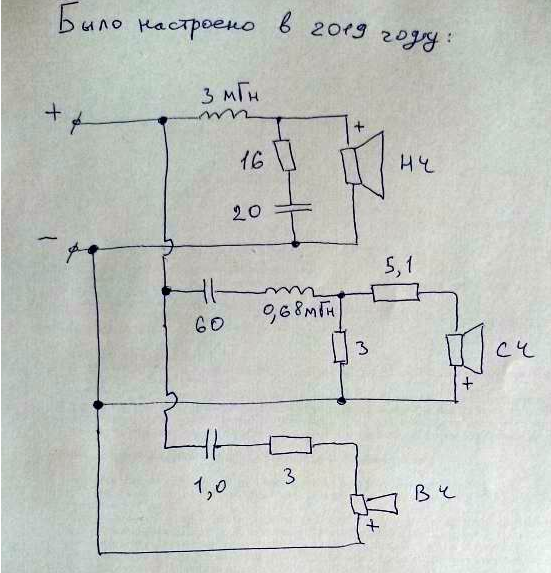 Было настроено в 2019 году:
3 мГн
+
+
16
НЧ
20
−
5,1
60
0,68мГн
3
СЧ
+
1,0
3
ВЧ
+